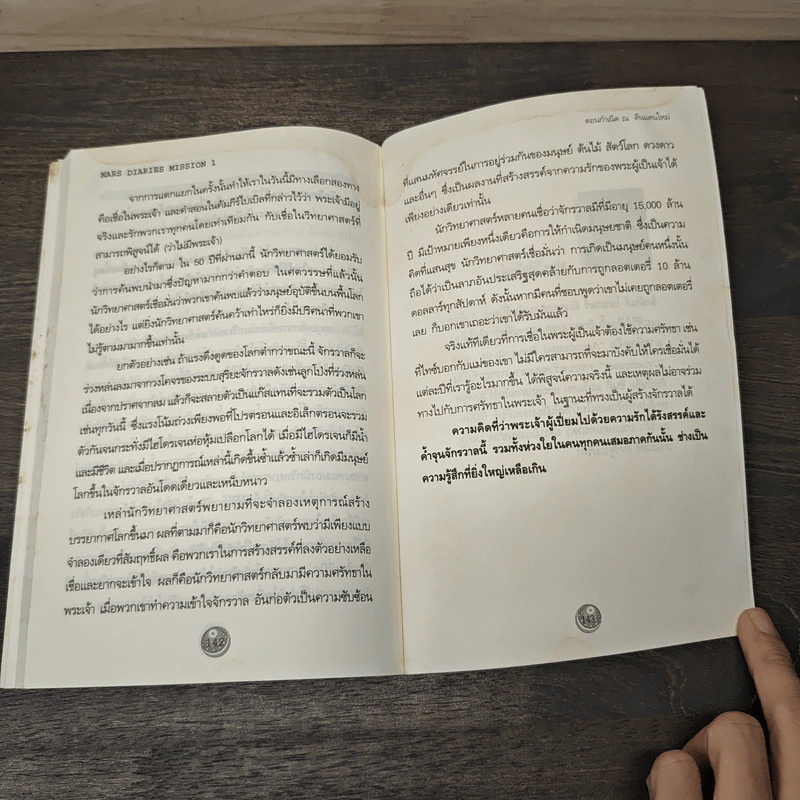 MARS DIARIES MISSION 1
จากการแตกแยกในครั้งนั้นทำให้เราในวันนี้มีทางเลือกสองทาง
คือเชื่อในพระเจ้า และคำสอนในคัมภีร์ไบเบิลที่กล่าวไว้ว่า พระเจ้ามีอยู่
จริงและรักพวกเราทุกคนโดยเท่าเทียมกัน กับเชื่อในวิทยาศาสตร์ที่
สามารถพิสูจน์ได้ (ว่าไม่มีพระเจ้า)
อย่างไรก็ตาม ใน 50 ปีที่ผ่านมานี้ นักวิทยาศาสตร์ได้ยอมรับ
ว่าการค้นพบนำมาซึ่งปัญหามากกว่าคำตอบ ในศตวรรษที่แล้วนั้น
นักวิทยาศาสตร์เชื่อมั่นว่าพวกเขาค้นพบแล้วว่ามนุษย์อุบัติขึ้นบนพื้นโลก
ได้อย่างไร แต่ยิ่งนักวิทยาศาสตร์ค้นคว้าเท่าไหร่ก็ยิ่งมีปริศนาที่พวกเขา
ไม่รู้ตามมามากขึ้นเท่านั้น
ยกตัวอย่างเช่น ถ้าแรงดึงดูดของโลกต่ำกว่าขณะนี้ จักรวาลก็จะ
ร่วงหล่นลงมาจากวงโคจรของระบบสุริยะจักรวาลดังเช่นลูกโป่งที่ร่วงหล่น
เนื่องจากปราศจากลม แล้วก็จะสลายตัวเป็นแก๊สแทนที่จะรวมตัวเป็นโลก
เช่นทุกวันนี้ ซึ่งแรงโน้มถ่วงเพียงพอที่โปรตรอนและอิเล็กตรอนจะรวม
ตัวกันจนกระทั่งมีไฮโดรเจนห่อหุ้มเปลือกโลกได้ เมื่อมีไฮโดรเจนก็มีน้ำ
และมีชีวิต และเมื่อปรากฏการณ์เหล่านี้เกิดขึ้นซ้ำแล้วซ้ำเล่าก็เกิดมีมนุษย์
โลกขึ้นในจักรวาลอันโดดเดี่ยวและเหน็บหนาว
เหล่านักวิทยาศาสตร์พยายามที่จะจำลองเหตุการณ์สร้าง
บรรยากาศโลกขึ้นมา ผลที่ตามมาก็คือนักวิทยาศาสตร์พบว่ามีเพียงแบบ
จำลองเดียวที่สัมฤทธิ์ผล คือพวกเราในการสร้างสรรค์ที่ลงตัวอย่างเหลือ
เชื่อและยากจะเข้าใจ ผลก็คือนักวิทยาศาสตร์กลับมามีความศรัทธาใน
พระเจ้า เมื่อพวกเขาทำความเข้าใจจักรวาล อันก่อตัวเป็นความซับซ้อน
142
ตอนกำเนิด ณ ดินแดนใหม่
ที่แสนมหัศจรรย์ในการอยู่ร่วมกันของมนุษย์ ต้นไม้ สัตว์โลก ดวงดาว
และอื่นๆ ซึ่งเป็นผลงานที่สร้างสรรค์จากความรักของพระผู้เป็นเจ้าได้
เพียงอย่างเดียวเท่านั้น
นักวิทยาศาสตร์หลายคนเชื่อว่าจักรวาลมีที่มีอายุ 15,000 ล้าน
ปี มีเป้าหมายเพียงหนึ่งเดียวคือการให้กำเนิดมนุษยชาติ ซึ่งเป็นความ
คิดที่แสนสุข นักวิทยาศาสตร์เชื่อมั่นว่า การเกิดเป็นมนุษย์คนหนึ่งนั้น
ถือได้ว่าเป็นลาภอันประเสริฐสุดคล้ายกับการถูกลอตเตอรี่ 10 ล้าน
ดอลลาร์ทุกสัปดาห์ ดังนั้นหากมีคนที่ชอบพูดว่าเขาไม่เคยถูกลอตเตอรี่
เลย ก็บอกเขาเถอะว่าเขาได้รับมันแล้ว
จริงแท้ทีเดียวที่การเชื่อในพระผู้เป็นเจ้าต้องใช้ความศรัทธา เช่น
ที่ไทซ์บอกกับแม่ของเขา ไม่มีใครสามารถที่จะมาบังคับให้ใครเชื่อมั่นได้
แต่ละปีที่เรารู้อะไรมากขึ้น ได้พิสูจน์ความจริงนี้ และเหตุผลไม่อาจร่วม
ทางไปกับการศรัทธาในพระเจ้า ในฐานะที่ทรงเป็นผู้สร้างจักรวาลได้
ความคิดที่ว่าพระเจ้าผู้เปี่ยมไปด้วยความรักได้รังสรรค์และ
ค้ำจุนจักรวาลนี้ รวมทั้งห่วงใยในคนทุกคนเสมอภาคกันนั้น ช่างเป็น
ความรู้สึกที่ยิ่งใหญ่เหลือเกิน
143